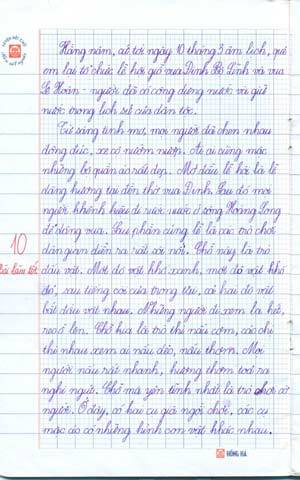 Hàng năm, cứ tới ngày 10 tháng 3 âm lịch, quê
em lại tổ chức lễ hội giỗ vua Đinh Bộ Lĩnh và vua
Lê Hoàn - người đã có công dựng nước và giữ
nước trong lịch sử của dân tộc.
Từ sáng tinh mơ, mọi người đã chen nhau
đông đúc, xe cộ nườm nượp. Ai ai cũng mặc
những bộ quần áo rất đẹp. Mở đầu lễ hội là lễ
dâng hương tại đền thờ vua Đinh. Sau đó mọi
người khênh kiệu đi rước nước ở sông Hoàng Long
để dâng vua. Sau phần cúng lễ là các trò chơi
10
dân gian diễn ra rất sôi nổi. Chỗ này là trò
Bài làm tốt
đấu vật. Một đô vật khố xanh, một đô vật khố
đỏ, sau tiếng còi của trọng tài, cả hai đô vật
bắt đầu vật nhau. Những người đi xem la hét,
reo hò lên. Chỗ kia là trò thi nấu cơm, các chị
thi nhau xem ai nấu dẻo, nấu thơm. Mọi
người nấu rất nhanh, hương thơm toả ra
nghi ngút. Chỗ mà yên tĩnh nhất là trò chơi cờ
người. Ở đây, có hai cụ già ngồi chơi, các cụ
mặc áo có những hình con vật khác nhau.
HỒNG HÀ